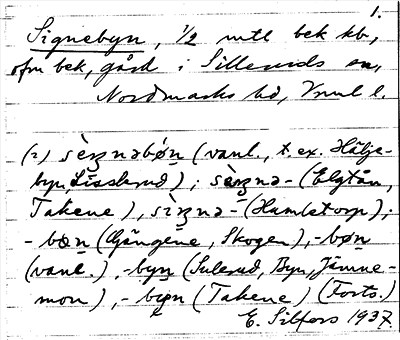 1.
Signebyn, 1/2 mtl bek kb,
ofm bek, gård i Silleruds sn,
Nordmarks hd, Vrml l.
(2) sè̱ꞃnabön (vanl., t.ex. Hälje-
byn, Lässerud); sèꞃna- (Elgtån,
Takene), sìꞃna- (Hamletorp);
-bœn (Gängene, Skogen), -bøn
(vanl.), -byn (Sulerud, Byn, Jämne-
mon), -byn (Takene) (Forts.)
E. Silfors 1937.